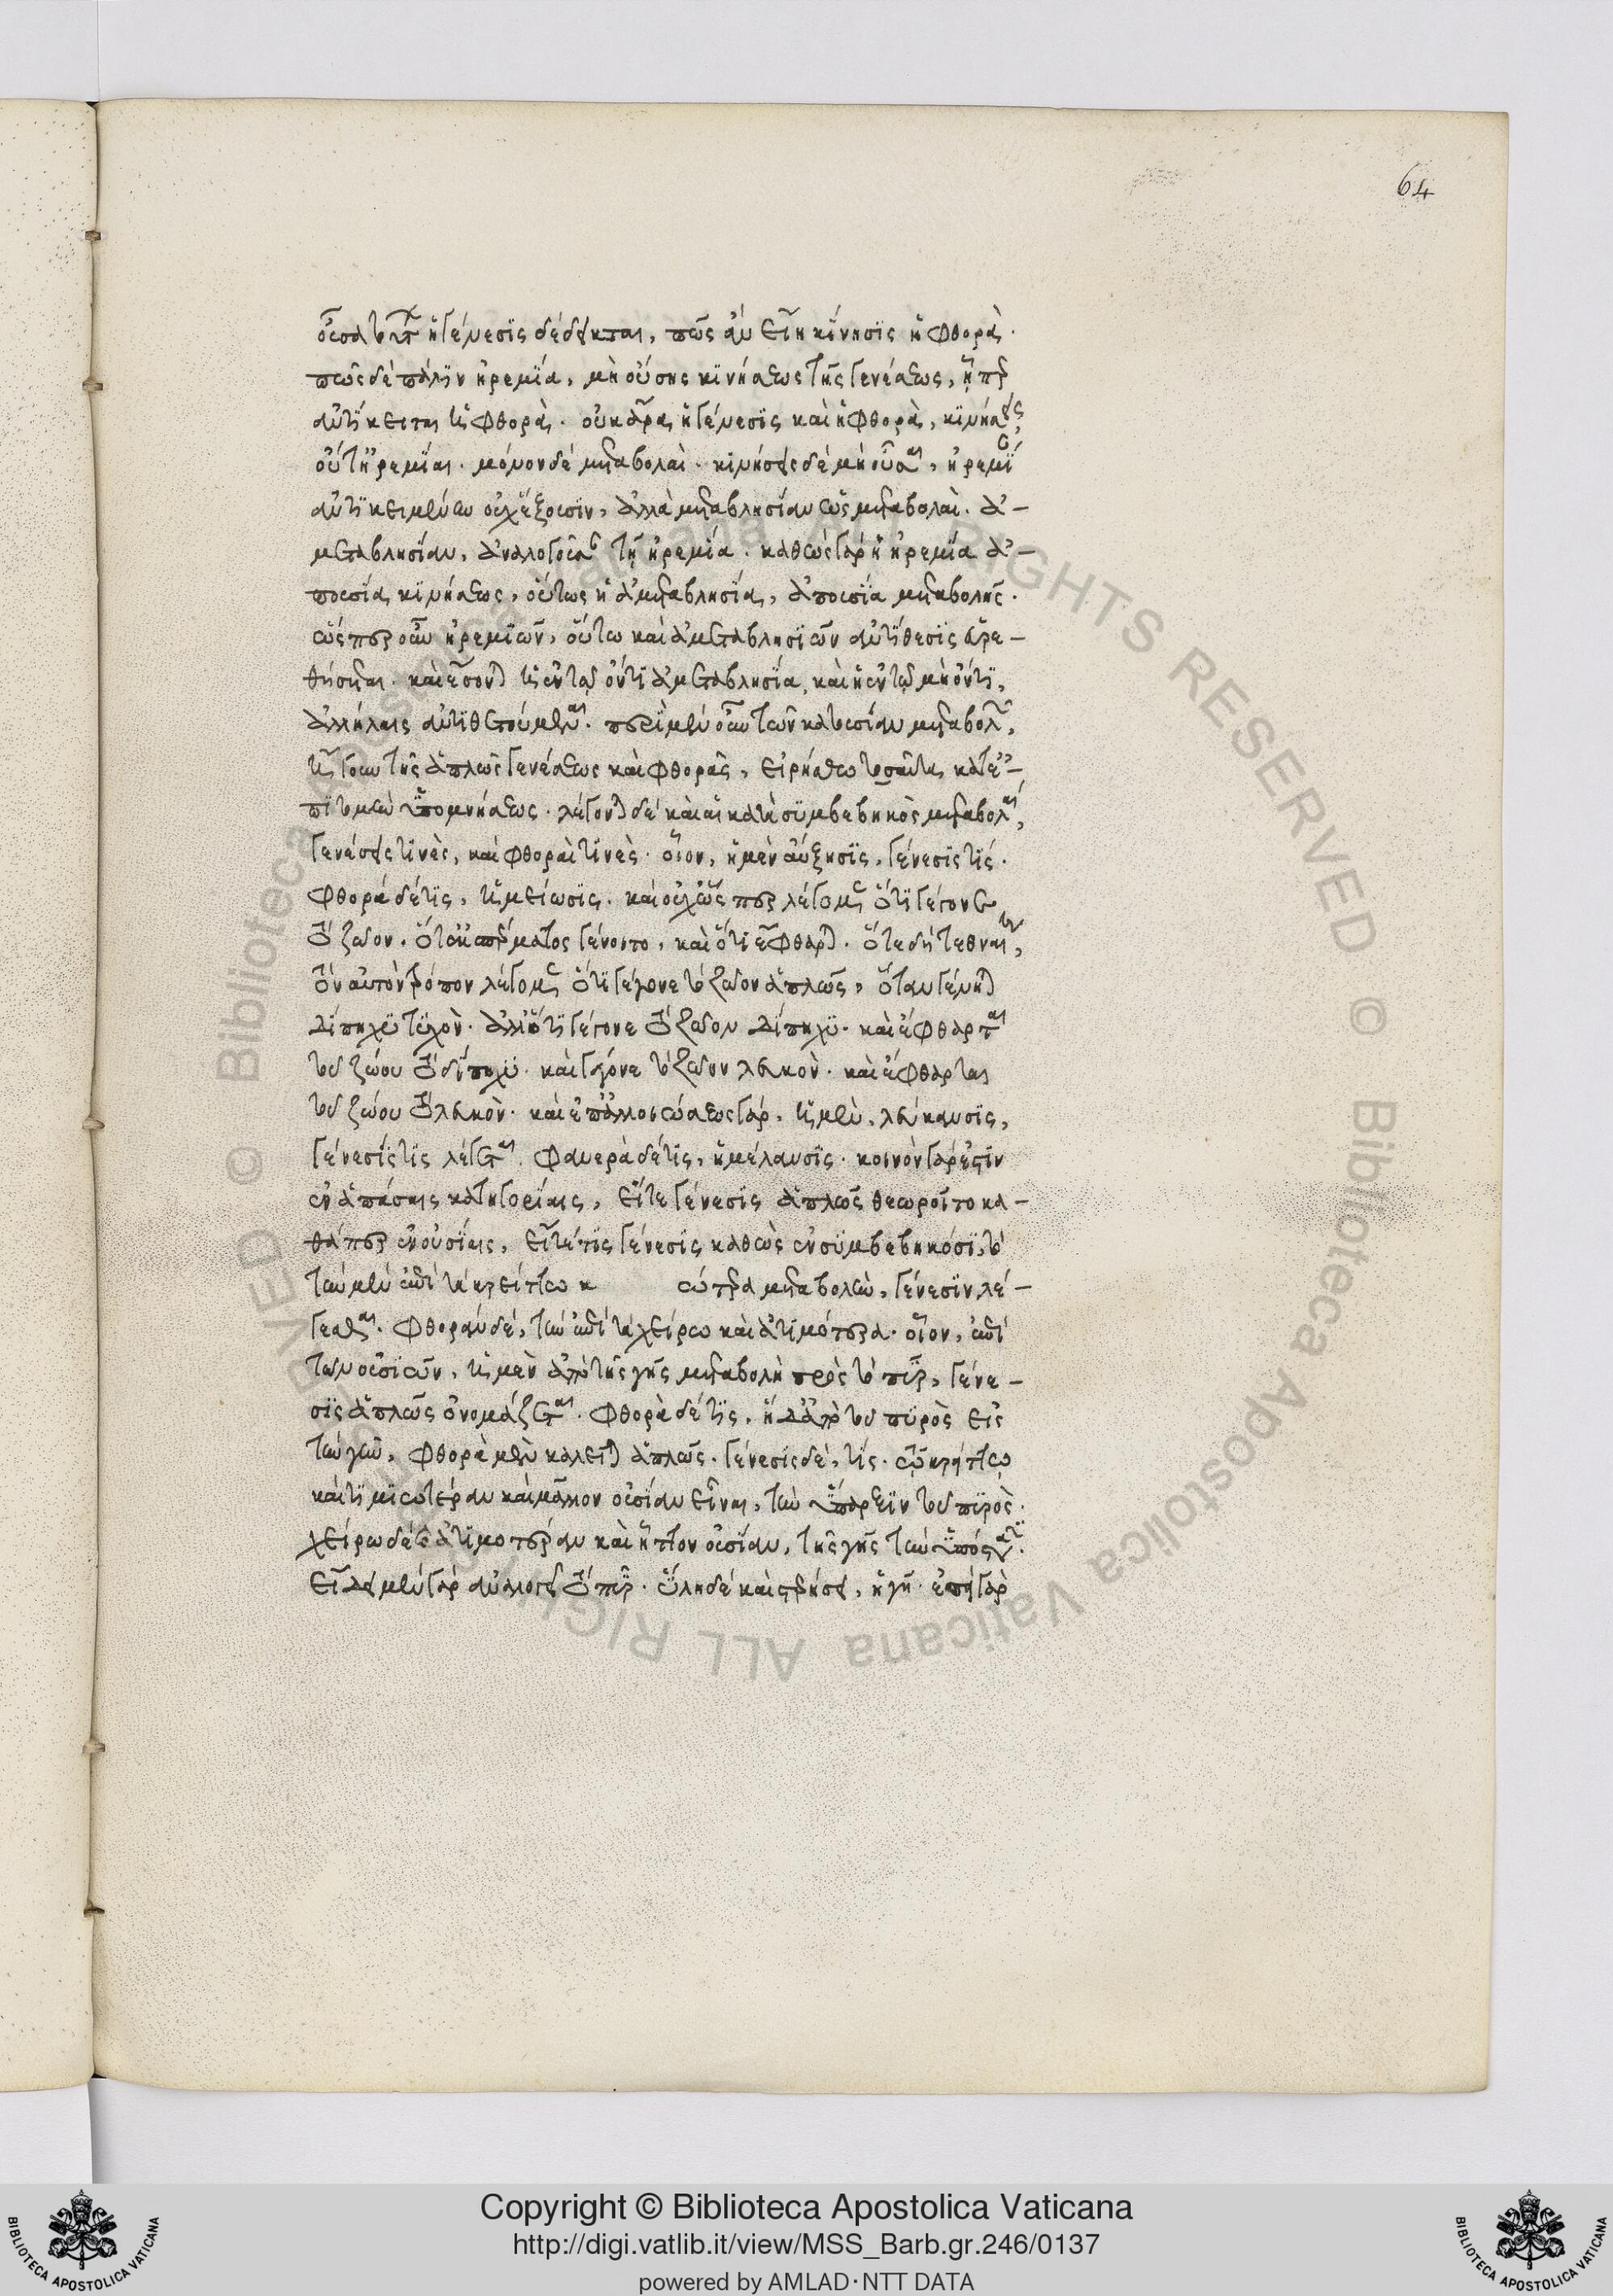 64
ἡ γένεσις δέδεικται, πῶς ἂν εἴη κίνησις ἡ φθορά.
πῶς δὲ πάλιν ἠρεμία, μὴ οὔσης κινήσεως τῆς γενέσεως, ᾗπερ
ἀντίκειται ἡ φθορά. οὐκ ἄρα ἡ γένεσις καὶ ἡ φθορά, κινήσεις,
οὔτ' ἠρεμίαι. μόνον δὲ μεταβολαί. κινήσεις δὲ μὴ οὖσαι, ἠρεμί
ἀντικειμένην οὐχ ἕξουσιν, ἀλλὰ μεταβλησίαν ὡς μεταβολαί. ἀ-
μεταβλησίαν, ἀναλογοῦσαν τῇ ἠρεμία. καθὼς γὰρ ἡ ἠρεμία ἀ-
πουσία κινήσεως, οὕτως ἡ ἀμεταβλησία, ἀπουσία μεταβολῆς.
ὥσπερ οὖν ἠρεμιῶν, οὕτω καὶ ἀμεταβλησιῶν ἀντίθεσις εὑρε-
θήσεται. καὶ ἔσονται ἡ ἐν τῷ ὄντι ἀμεταβλησία, καὶ ἡ ἐν τῷ μὴ ὄντι,
ἀλλήλαις ἀντιθετούμεναι. περὶ μὲν οὖν τῶν κατ' οὐσίαν μεταβολῶν,
ἤγουν τῆς ἁπλῶς γενέσεως καὶ φθορᾶς, εἰρήσθω τοσαῦτα κατ' ἐ-
πιτομὴν ὑπομνήσεως. λέγονται δὲ καὶ αἱ κατὰ συμβεβηκὸς μεταβολαί,
γενέσεις τινὲς, καὶ φθοραὶ τινές. οἷον, ἡ μὲν αὔξησις, γένεσις τίς.
φθορὰ δέ τις, ἡ μείωσις. καὶ οὐχ ὥσπερ λέγομεν ὅτι γέγονε
τὸ ζῶον, ὅτε ἐκ σπέρματος γένοιτο, καὶ ὅτι ἔφθαρται. ὅτε δὴ τεθναίη,
τὸν αὐτὸν τρόπον λέγομεν ὅτι γέγονε τὸ ζῶον ἁπλῶς, ὅταν γένηται
δίπηχυ τυχόν. ἀλλ' ὅτι γέγονε τὸ ζῶον δίπηχυ. καὶ ἔφθαρται
τοῦ ζώου τὸ δίπηχυ. καὶ γέγονε τὸ ζῶον λευκόν. καὶ ἔφθαρται
τοῦ ζώου τὸ λευκόν. καὶ ἐπ' ἀλλοιώσεως γὰρ, ἡ μὲν, λεύκανσις,
γένεσίς τις λέγεται. φανερὰ δέ τις, ἡ μέλανσις. κοινὸν γάρ ἐστιν
ἐν ἁπάσαις κατηγορίαις, εἴτε γένεσις ἁπλῶς θεωροῖτο κα-
θάπερ ἐν οὐσίαις, εἴτέ τις γένεσις καθὼς ἐν συμβεβηκόσι, τὸ
τὴν μὲν ἐπὶ τὰ κρείττω κ ώτερα μεταβολὴν, γένεσιν λέ-
γεσθαι. φθορὰν δέ, τὴν ἐπὶ τὰ χείρω καὶ ἀτιμότερα. οἷον, ἐπὶ
τῶν οὐσιῶν, ἡ μὲν ἀπὸ τῆς γῆς μεταβολὴ πρὸς τὸ πῦρ, γένε-
σις ἁπλῶς ὀνομάζεται. φθορὰ δέ τις. ἡ δ' ἀπὸ τοῦ πυρὸς εἰς
τὴν γῆν, φθορὰ μὲν καλεῖται ἁπλῶς. γένεσις δέ, τίς. τῷ κρείττω
καὶ τιμιωτέραν καὶ μᾶλλον οὐσίαν εἶναι, τὴν ὕπαρξιν τοῦ πυρός.
χείρω δὲ καὶ ἀτιμοτέραν καὶ ἧττον οὐσίαν, τῆς γῆς τὴν ὑπόστασιν.
εἴδει μὲν γὰρ ἀναλογεῖ τὸ πῦρ. ὕλη δὲ καὶ στερήσει, ἡ γῆ. ἐπεὶ γὰρ
Copyright © Biblioteca Apostolica Vaticana
http://digi.vatlib.it/view/MSS_Barb.gr.246/0137
powered by AMLAD·NTT DATA
BIBLIOTECA APOSTOLICA VATICANA
BIBLIOTECA APOSTOLICA VATICANA